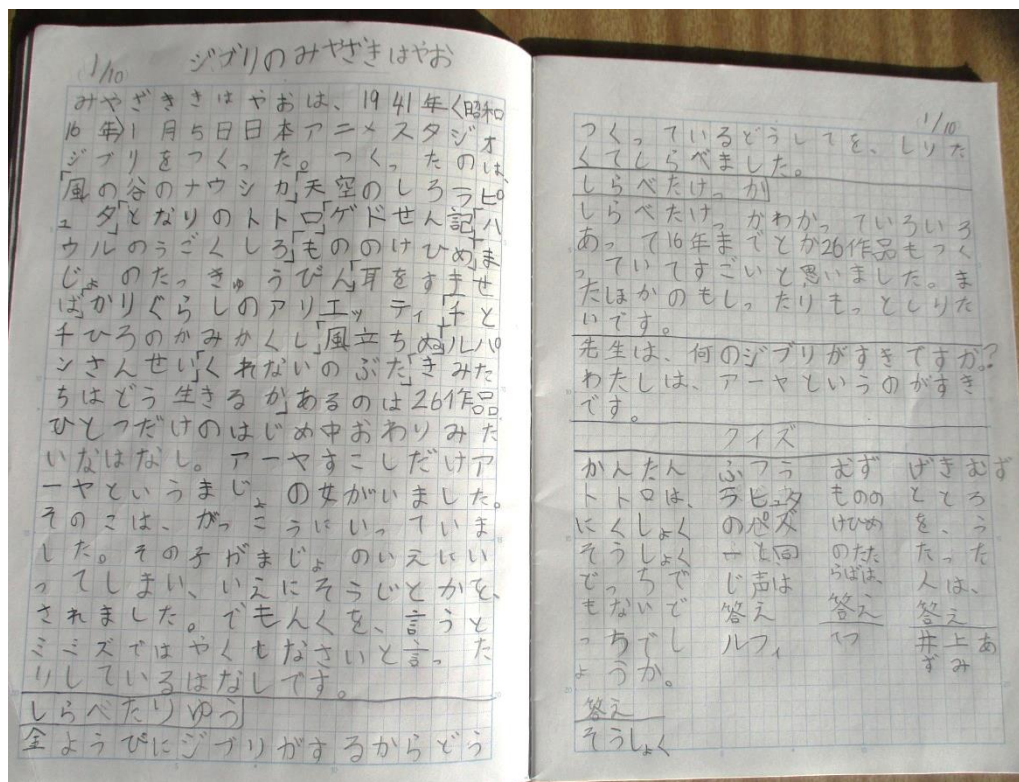 1/10
ジブリのみやざきはやお
みやざききはやおは、19 41年〈昭和
16年〉1月5日日本アニメスタジオ
ジブリをつくった。つくったのは、
「風の谷のナウシカ」「天空のしろラピ
ュタ」「となりのトトロ」「ゲドせん記」「ハ
ウルのうごくしろ」「もののけひめ」「ま
じょのたっきゅうびん」「耳をすませ
ば」「かりぐらしのアリエッティ」「千と
千ひろのかみかくし」「風立ちぬ」「ルパ
ンさんせい」「くれないのぶた」「きみた
ちはどう生きるか」あるのは26作品
ひとつだけのはじめ中おわりみた
いなはなし。アーヤすこしだけア
ーヤというまじょの女がいました。
そのこは、がっこうにいっていま
した。その子がまじょのいえにい
ってしまい、いえにそうじとかを、
されました。でもんくを、言うと
ミミズではやくもなさいと言った
りしているはなしです。
しらべたりゆう
金ようびにジブリがするからどう
1/10
つくっているどうしてを、しりた
くてしらべました。
しらべたけっか
しらべたけっかわかっていろいろ
あって16年までとか26作品もつく
っていてすごいと思いました。ま
たほかのもしったりもっとしりた
いです。
先生は、何のジブリがすきですか。?
わたしは、アーヤというのがすき
です。
クイズ
かんたん
トトロは、
にくしょく
そうしょく
どっちで
もないで
っちでし
ょうか。
答え
そうしょく
ふつう
ラピュタ
のパズ
ーと同
じ声は
答え
ルフィ
むず
ものの
けひめ
のたた
らばは、
答え
てつ
げきむず
ととろ
を、う
たった
人は、
答え
井上あ
ずみ